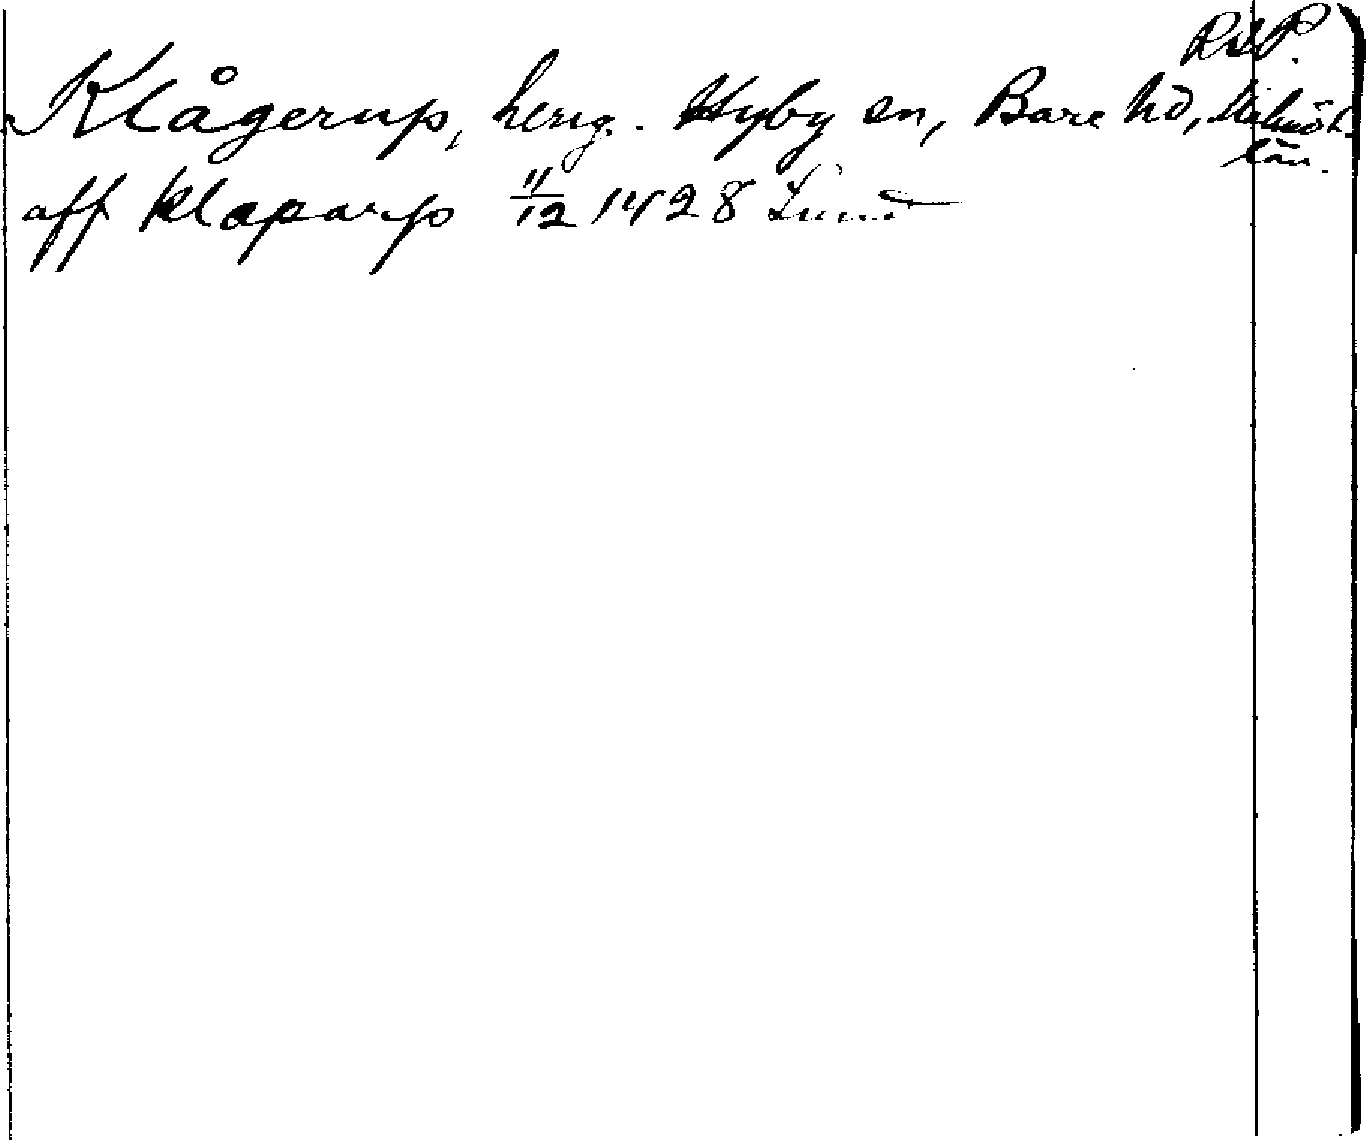 RAP.
Klågerup, herrg. Hyby sn, Bara hd, Malmöh.
län.
aff klaparp 11/12 1428 Lund